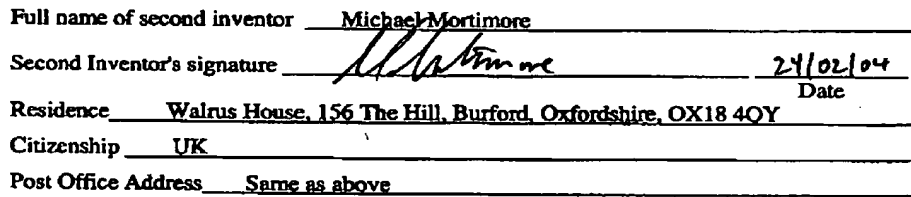 Full name of second inventor Michael Mortimore
Second Inventor's signature M Mortimore 24/02/04
Date
Residence Walrus House, 156 The Hill, Burford, Oxfordshire, OX18 4QY
Citizenship UK
Post Office Address Same as above